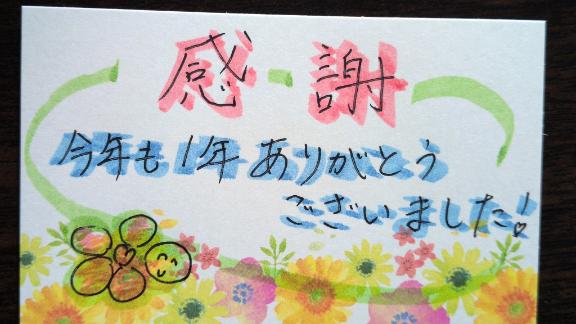 感謝
今年も1年ありがとう
ございました!